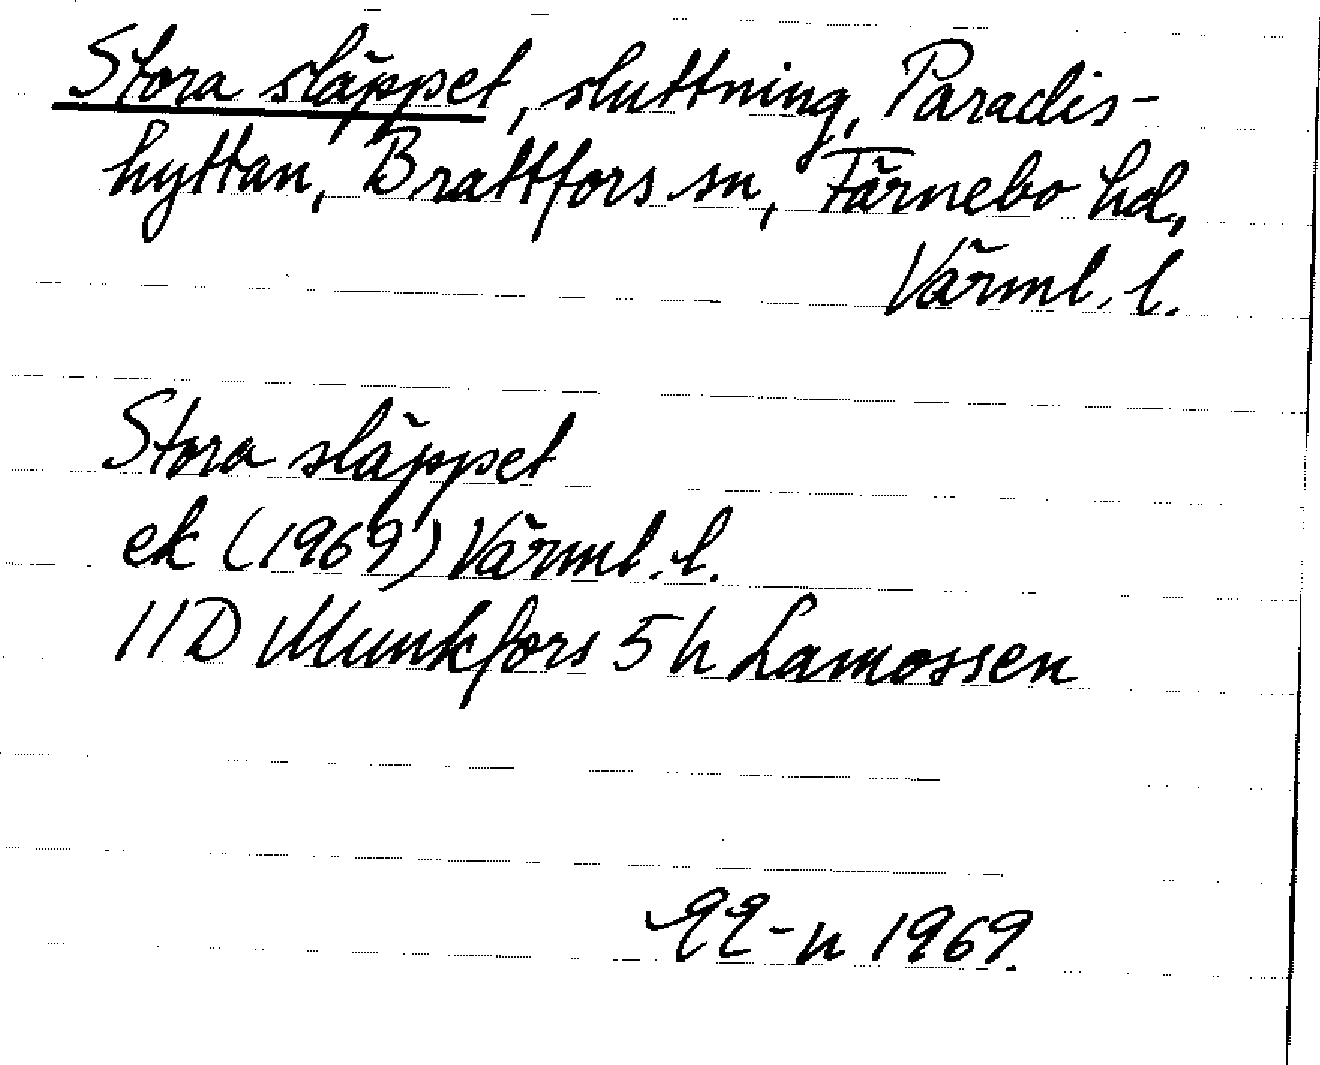 Stora släppet, sluttning, Paradis-
hyttan, Brattfors sn, Färnebo hd,
Värml. l.
Stora släppet
ek (1969) Värml. l.
11D Munkfors 5h Lamossen
1969.